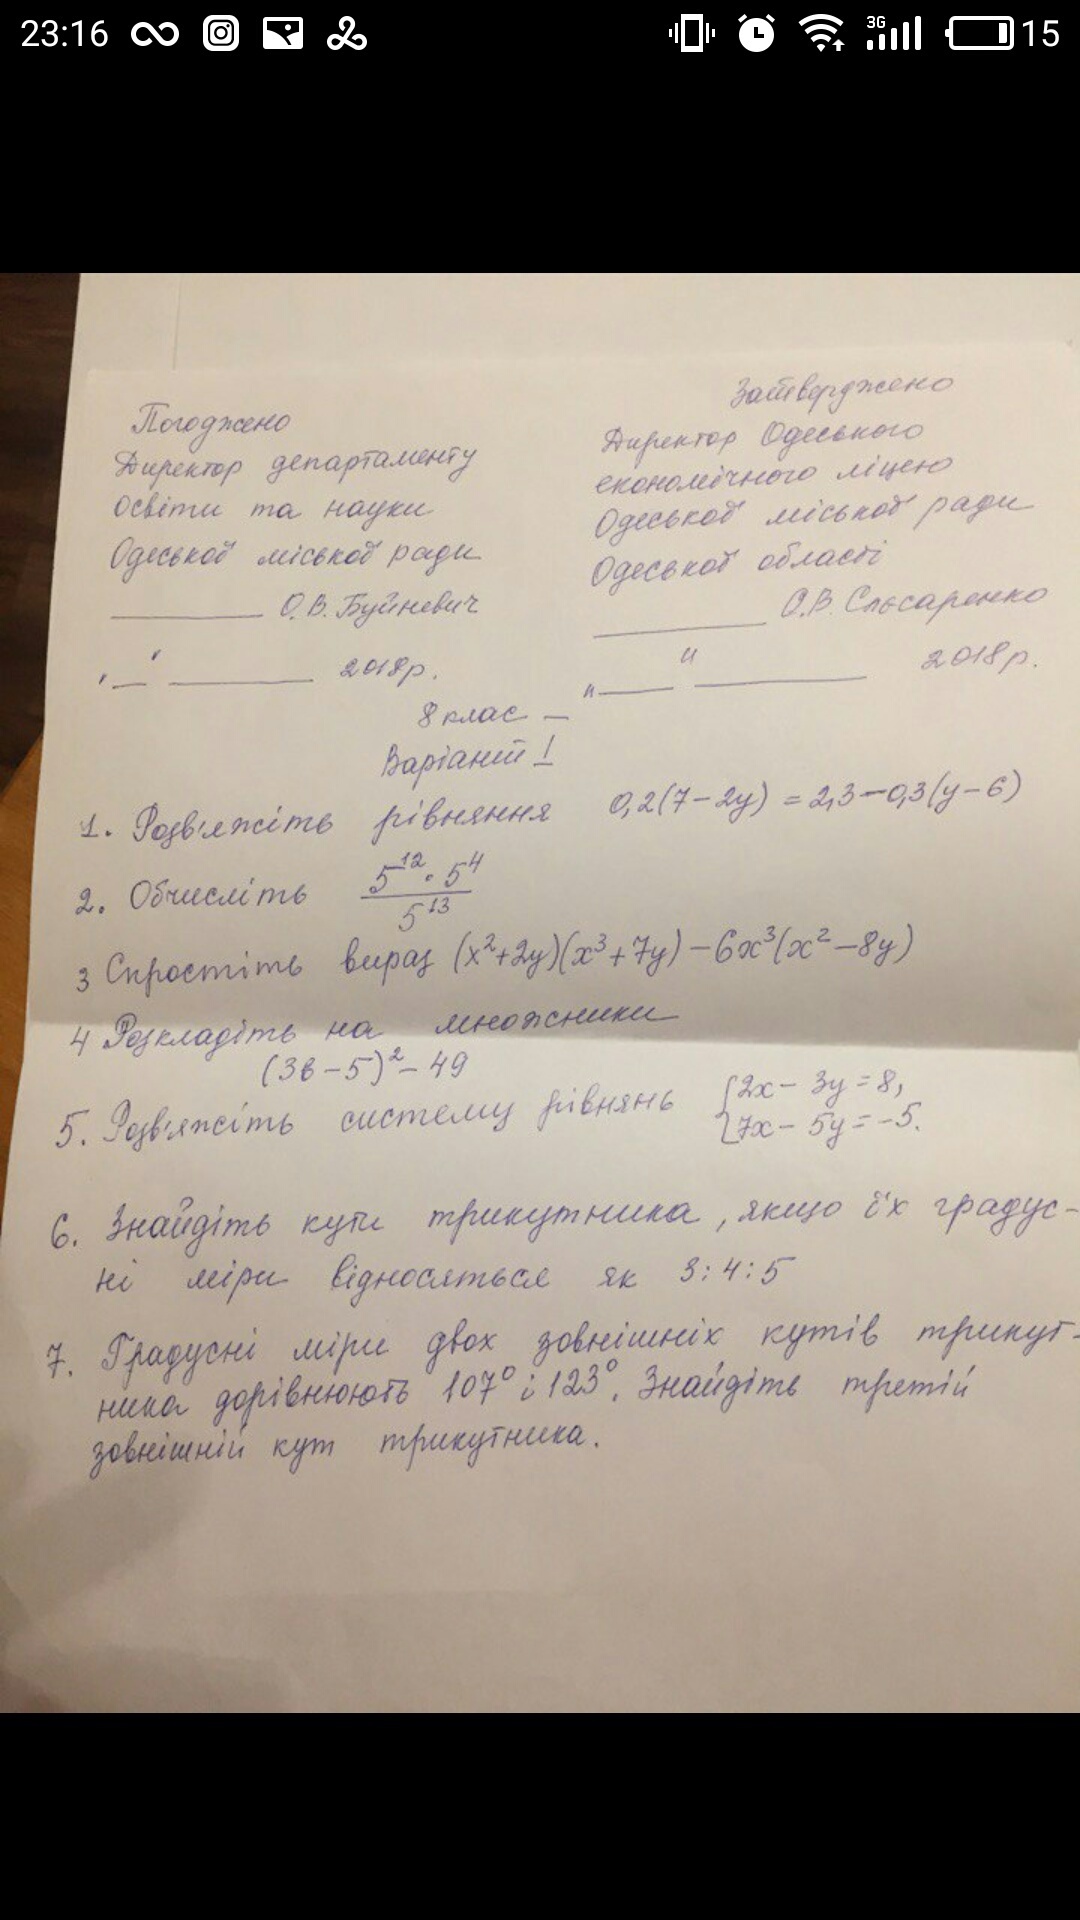 23:16
3G
15
Погоджено
Директор департаменту
освіти та науки
Одеської міської ради
_________ О.В. Буйневич
"__" _________ 2018р.
Затверджено
Директор Одеського
економічного ліцею
Одеської міської ради
Одеської області
_________ О.В. Слюсаренко
"____" _________ 2018р.
8 клас –
Варіант I
1. Розв'яжіть рівняння 0,2(7-2y) = 2,3-0,3(y-6)
2. Обчисліть 5^12 · 5^4
5^13
3 Спростіть вираз (x²+2y)(x³+7y)-6x³(x²-8y)
4 Розкладіть на множники
(3в-5)²-49
5. Розв'яжіть систему рівнянь { 2x- 3y=8,
7x- 5y=-5.
6. Знайдіть кути трикутника, якщо їх градус-
ні міри відносяться як 3:4:5
7. Градусні міри двох зовнішніх кутів трикут-
ника дорівнюють 107° і 123°. Знайдіть третій
зовнішній кут трикутника.